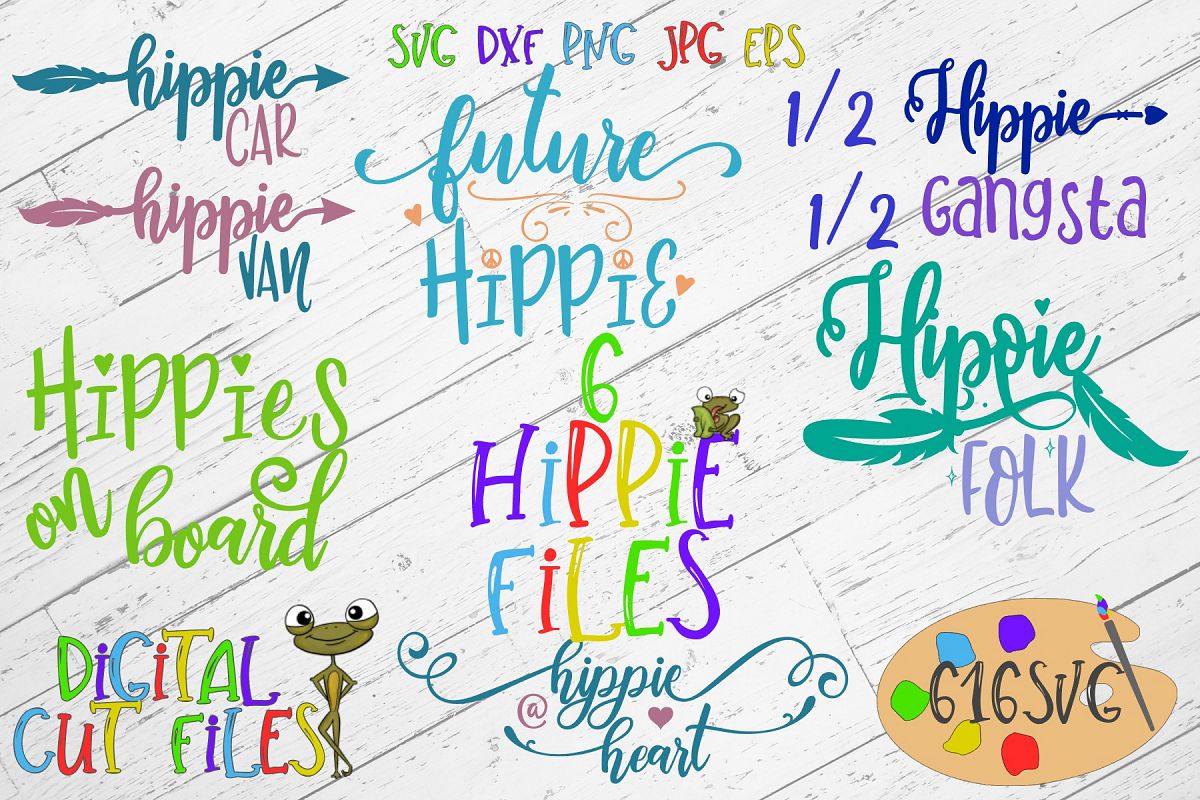 SVG DXF PNG JPG EPS
hippie
CAR
hippie
VAN
future
Hippie
1/2 Hippie
1/2 Gangsta
Hippies
on board
Hippie
FOLK
6
HiPPiE
FiLES
DiGiTAL
CUT FiLES
hippie
@ heart
616SVG